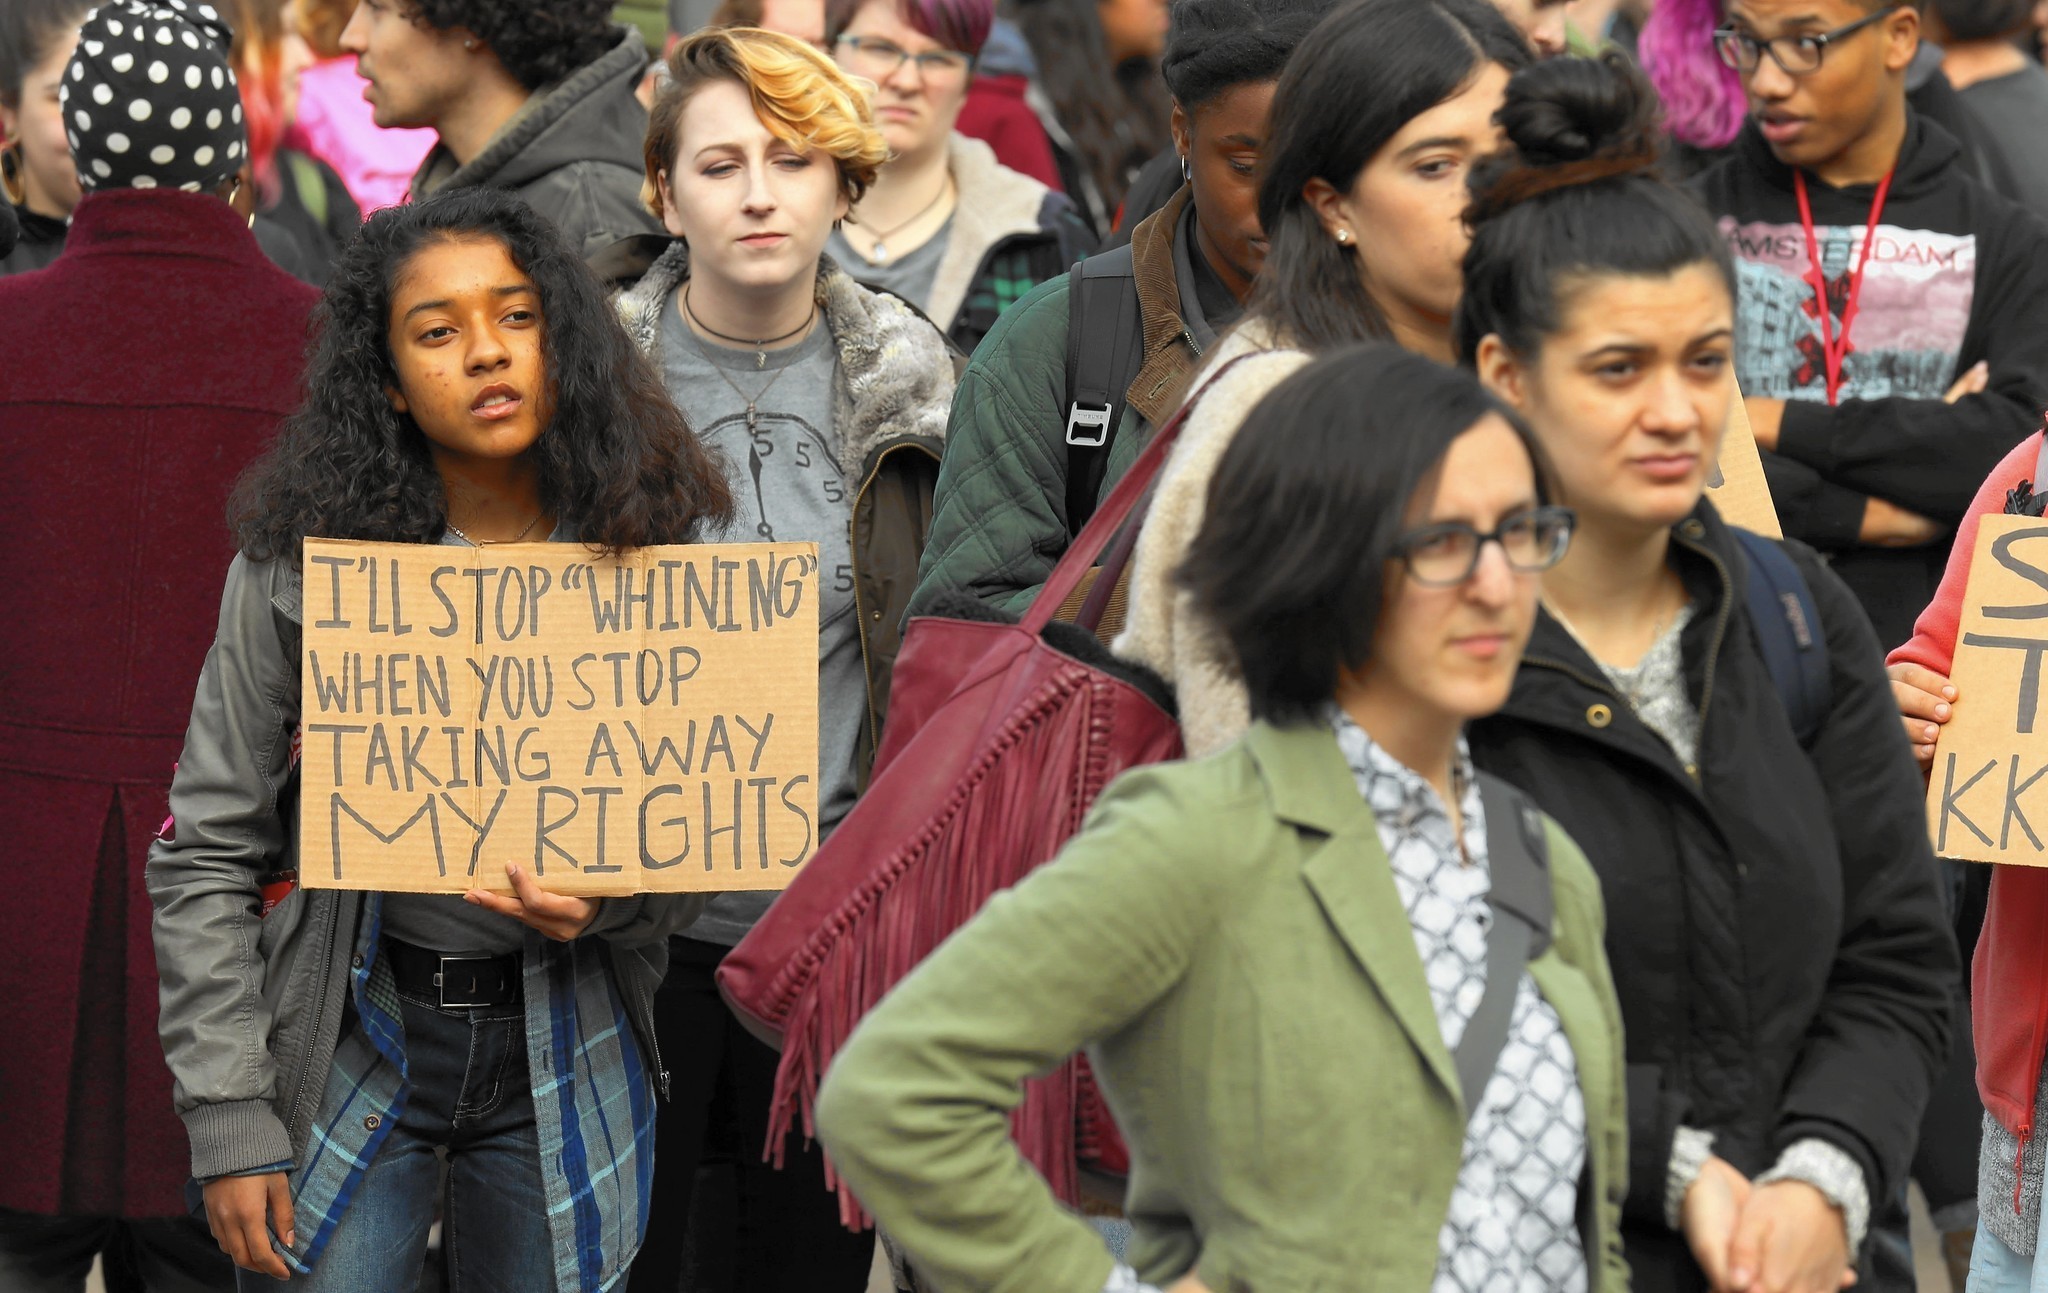 I'LL STOP "WHINING"
WHEN YOU STOP
TAKING AWAY
MY RIGHTS
5 5
5
5
AMSTERDAM
S
T
KK